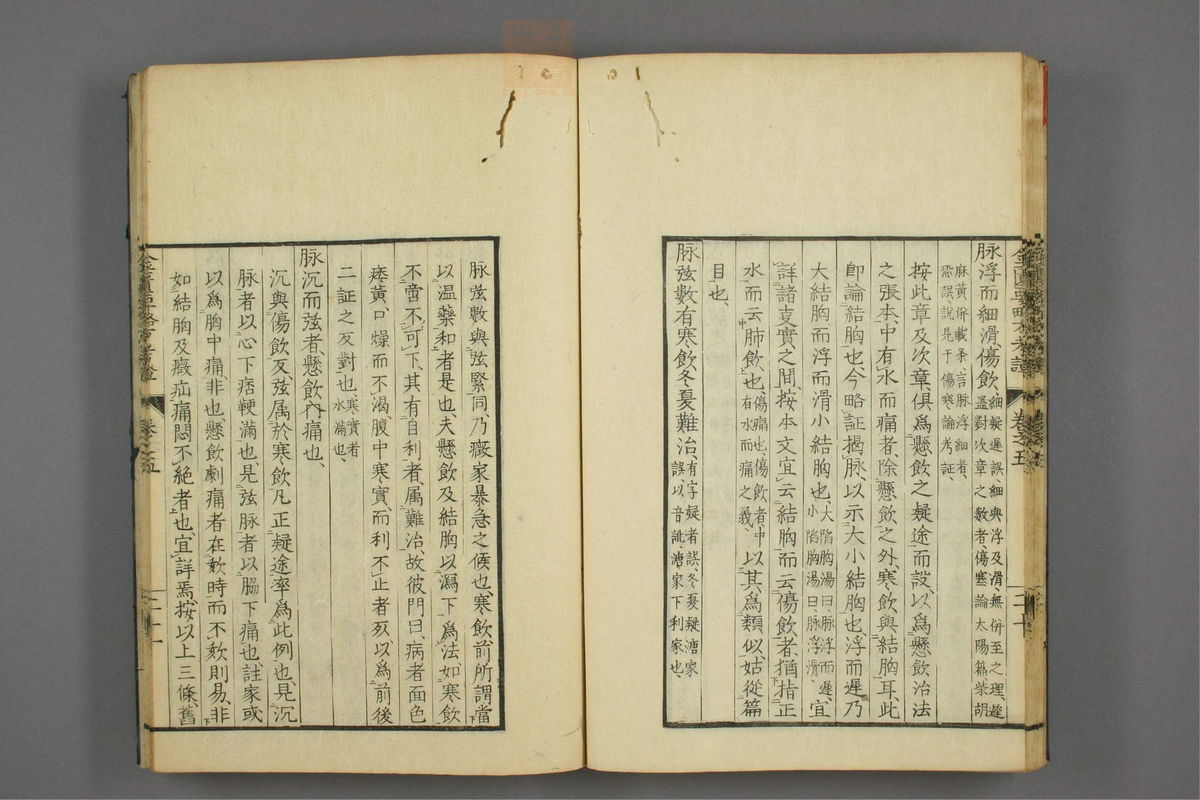 脉浮而細滑、傷飲、細疑遲誤、細與浮及滑、無併至之理、遲
蓋對次章之數者傷寒論太陽篇柴胡
麻黄併載条、言脉浮細者、
恐誤、說見于傷寒論考証、
按此章及次章、俱爲懸飲之疑途而設、以爲懸飲治法
之張本、中有水而痛者、除懸飲之外、寒飲與結胸耳、此
卽論結胸也、今略証揭脉、以示大小結胸也、浮而遲、乃
大結胸、而浮滑小結胸也、大陷胸湯曰、脉浮而遲、
小陷胸湯曰、脉浮滑、宜
詳諸支實之間、按本文宜云結胸而云傷飲者、猶指正
水而云肺飲也、傷痛也、傷飲者、中
有水而痛之義、以其爲類似、姑從篇
目也、
脉弦數有寒飲、冬夏難治、有字疑者誤、冬夏疑溏家
誤、以音訛、溏家下利家也、
脉弦數與弦緊同、乃癥家暴急之候也、寒飲前所謂當
以温藥和者是也、夫懸飲及結胸以瀉下爲法、如寒飲
不啻不可下、其有自利者、属難治、故彼門曰、病者面色
痿黄口燥而不渴、腹中寒實、而利不止者死、以爲前後
二証之反對也、寒實者
水滿也、
脉沉而弦者、懸飲內痛也、
沉與傷飲反、弦属於寒飲、凡正疑途率爲此例也、見沉
脉者以心下痞鞕滿也、是弦脉者以脇下痛也、註家或
以爲胸中痛、非也、懸飲劇痛者在欬時、而不欬則易、非
如結胸及癥疝痛悶不絶者也、宜詳焉、按以上三條、舊
卷之五
卷之五